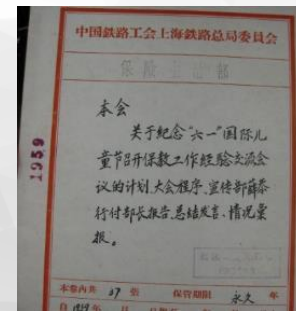 中国鉄路工会上海鉄路总局委员会
1959
本会
关于纪念“六一”国际儿
童节召开保教工作经验会交流会
议的计划、大会程序、宣传部薛泰
行付部长报告、总结发言、情况汇
报。
本卷内共 37 张 保管期限 永久 年
自 1959 年